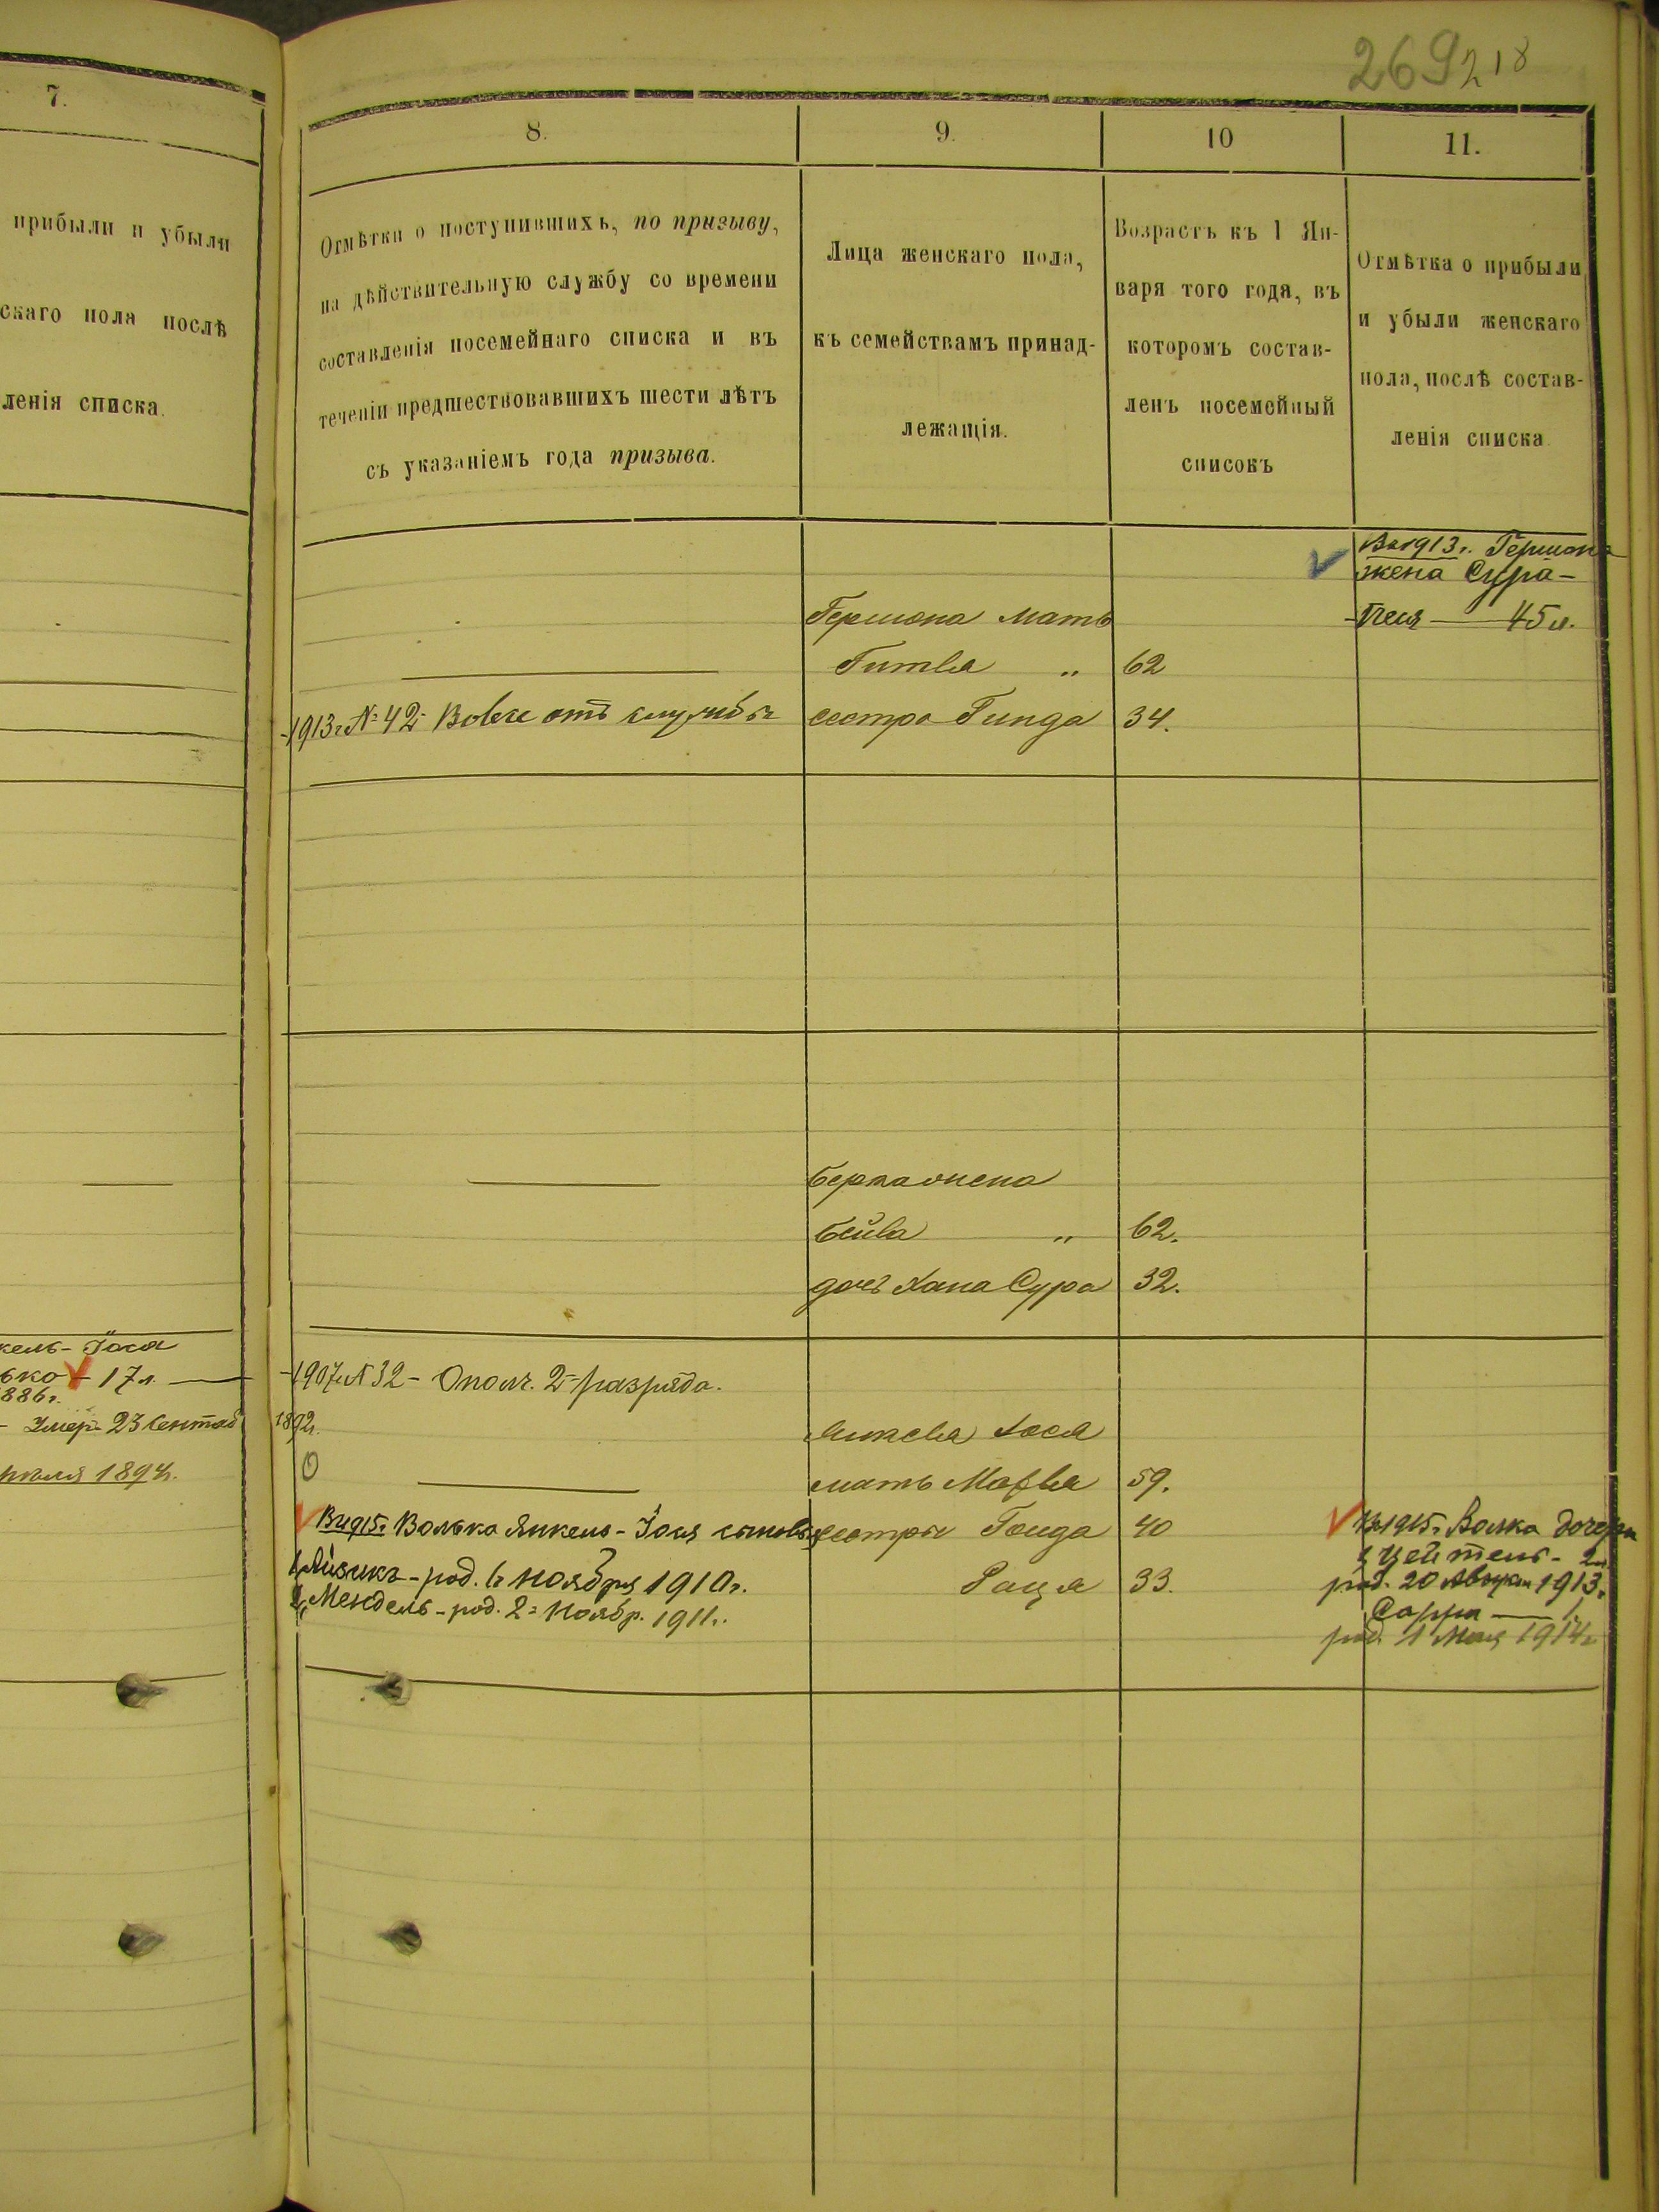 269 218
7.
прибыли и убыли
скаго пола послѣ
ленія списка.
8.
Отмѣтки о поступившихъ, по призыву,
на дѣйствительную службу со времени
составленія посемейнаго списка и въ
теченіи предшествовавшихъ шести лѣтъ
съ указаніемъ года призыва.
9.
Лица женскаго пола,
къ семействамъ принад-
лежащія.
10
Возрастъ къ 1 Ян-
варя того года, въ
которомъ состав-
ленъ посемейный
списокъ
11.
Отмѣтка о прибыли
и убыли женскаго
пола, послѣ состав-
ленія списка
Въ 1913 г. Гершона
жена Сура-
Песя — 45 л.
Гершона мать
Гитля „ 62
1913 г. № 42 Вовсе отъ службы сестра Гинда 34.
Берка жена
Бейла „ 62.
дочь Хана Сура 32.
кель-Iося
ько 17 л.
886 г.
- Умеръ 23 Сентяб 1892 г.
1894 г.
1907 г. № 32 - Ополч. 2 разряда.
Янкеля Iося
мать Марля 59.
сестры 40
33.
Въ 1915 г. Волька Янкель-Iося сыновья
1, Айзикъ - род. 6 Ноября 1910 г.
2, Мендель - род. 2 Ноябр. 1911 г.
Въ 1915 г. Волка дочери
1, Цейтель - 2 л.
род. 20 Августа 1913 г.
Сарра — 1
род. 1 Мая 1914 г.